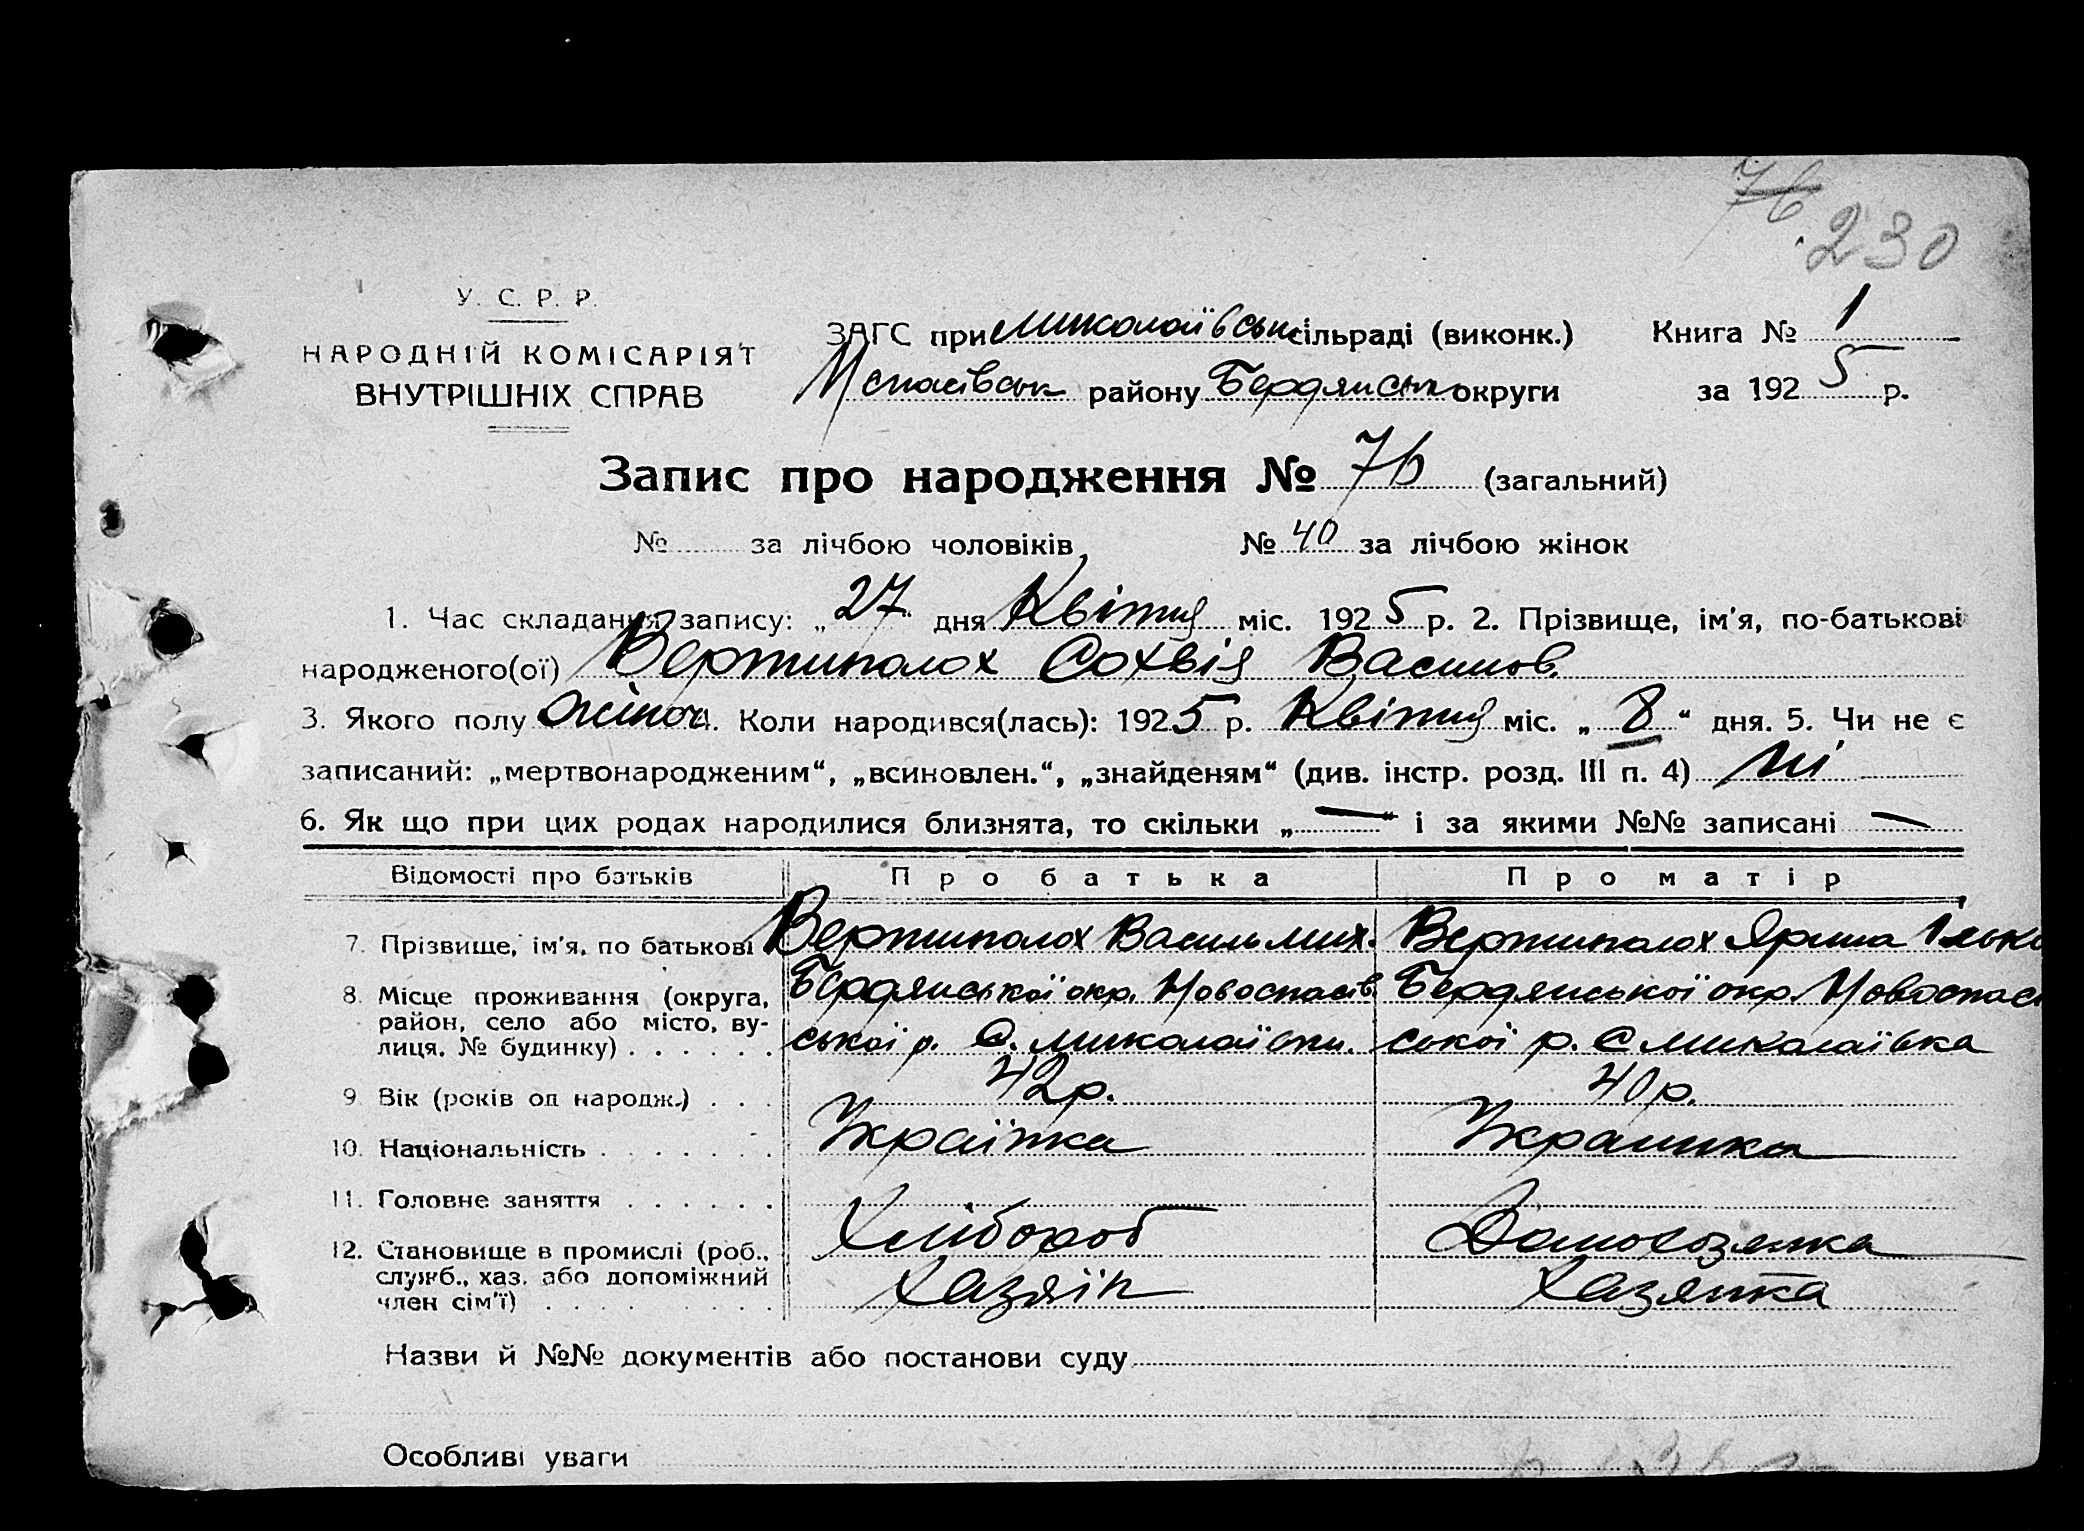 76
230
У. С. Р. Р.
НАРОДНІЙ КОМІСАРІЯТ
ВНУТРІШНІХ СПРАВ
ЗАГС при Миколаївськ сільраді (виконк.)
Нспасівськ району Бердянськ округи
Книга № 1
за 1925 р.
Запис про народження № 76 (загальний)
№ за лічбою чоловіків, № 40 за лічбою жінок
1. Час складання запису: „27“ дня Квітня міс. 1925 р. 2. Прізвище, ім'я, по-батькові
народженого(ої) Вертиполох Сохвія Васильов.
3. Якого полу жіноч 4. Коли народився(лась): 1925 р. Квітня міс. „8“ дня. 5. Чи не є
записаний: „мертвонародженим“, „всиновлен.“, „знайденям“ (див. інстр. розд. III п. 4) ні
6. Як що при цих родах народилися близнята, то скільки „—“ і за якими №№ записані —
Відомості про батьків Про батька Про матір
7. Прізвище, ім'я, по батькові Вертиполох Василь Мих. Вертиполох Ярина Ільков
8. Місце проживання (округа, Бердянської окр. Новоспасів Бердянської окр. Новоспасі
район, село або місто, ву-
лиця, № будинку) ської р. С. Миколаївки. ської р. С Миколаївка
9. Вік (років од народж.) 42 р. 40 р.
10. Національність Українка Украинка
11. Головне заняття Хлібороб Домохозяйка
12. Становище в промислі (роб.,
служб., хаз. або допоміжний
член сім'ї) Хазяїн Хазяйка
Назви й №№ документів або постанови суду
Особливі уваги